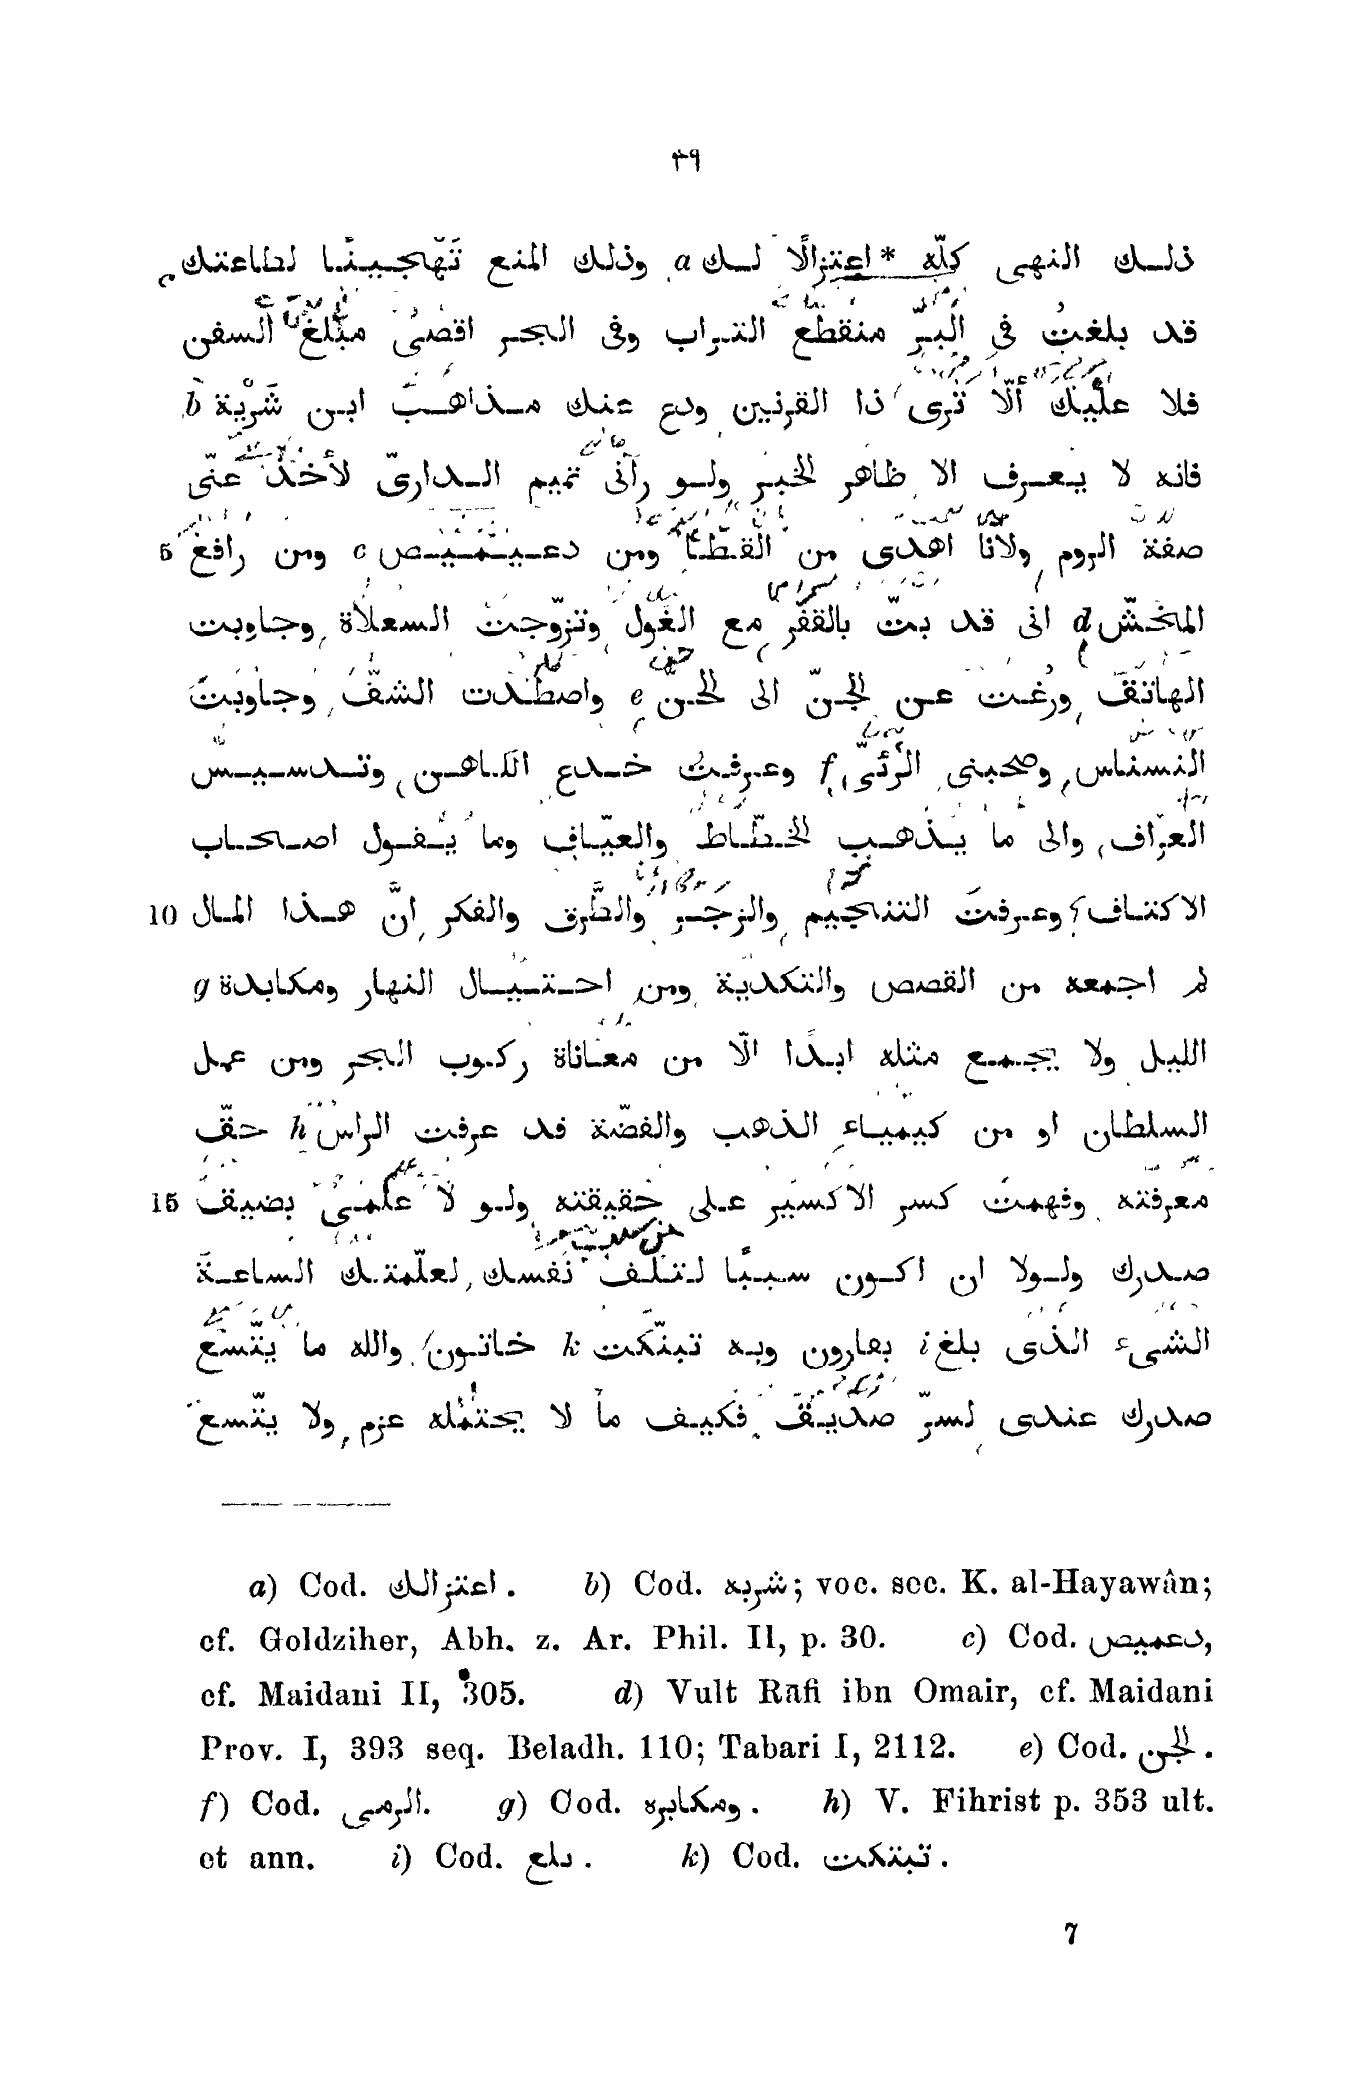 ٣٩
ذلك النهى كلّه * اعتزالًا لك a وذلك المنع تَهْجِينًا لطاعتك
قد بلغتُ فى البَرّ منقطع التراب وفى البحر اقصى مبلغ السفن
فلا عليك ألّا تَرى ذا القرنين ودع عنك مذاهب ابن شَرْيَة b
فانه لا يعرف الا ظاهر الخبر ولو رآنى تميم الدارىّ لأخذ عنّى
5 صفة الروم ولأنا اهدى من القطا ومن دعيميص c ومن رافع
المخشّ d انى قد بتّ بالقفر مع الغول وتزوّجت السعلاة وجاوبت
الهاتف ورُغت عن الجنّ الى الحنّ e واصطدت الشقّ وجاوبت
النسناس وصحبنى الرئىّ f وعرفت خدع الكاهن وتدسيس
العرّاف والى ما يذهب الخطّاط والعيّاف وما يقول اصحاب
10 الاكتاف وعرفت التنجيم والزجر والطَّرق والفكر إنَّ هذا المال
لم اجمعه من القصص والتكدية ومن احتيال النهار ومكابدة g
الليل ولا يجمع مثله ابدًا الّا من معاناة ركوب البحر ومن عمل
السلطان او من كيمياء الذهب والفضّة قد عرفت الراس h حقّ
15 معرفته وفهمت كسر الاكسير على حقيقته ولو لا علمى بضيق
صدرك ولولا ان اكون سببًا لتلف نفسك لعلّمتك الساعة
الشىء الذى بلغ i بقارون وبه تبنّكت k خاتون والله ما يتّسع
صدرك عندى لسرّ صديق فكيف ما لا يحتمله عزم ولا يتّسع
a) Cod. اعتزالك. b) Cod. شربه; voc. sec. K. al-Hayawân;
cf. Goldziher, Abh. z. Ar. Phil. II, p. 30. c) Cod. دعميص,
cf. Maidani II, 305. d) Vult Râfi ibn Omair, cf. Maidani
Prov. I, 393 seq. Beladh. 110; Tabari I, 2112. e) Cod. الجن.
f) Cod. الرمى. g) Cod. ومكابره. h) V. Fihrist p. 353 ult.
et ann. i) Cod. بلع. k) Cod. تبتكت.
7